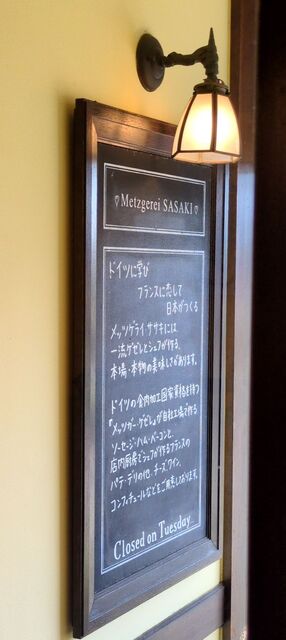 ♡Metzgerei SASAKI♡
ドイツに学び
フランスに恋して
日本がつくる
メッツゲライササキには
一流ゲゼレとシェフが作る、
本場・本物の美味しさがあります。
ドイツの食肉加工国家資格を持つ
「メッツガー・ゲゼレ」が自社工場で作る
ソーセージ・ハム・ベーコンと、
店内厨房でシェフが作るフランスの
パテ・デリの他、チーズ、ワイン、
コンフィチュールなどをご用意しております。
Closed on Tuesday